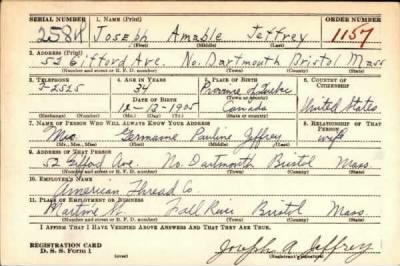 SERIAL NUMBER 1. NAME (Print) ORDER NUMBER
258 Joseph Amable Jeffrey 1157
(First) (Middle) (Last)
2. ADDRESS (Print)
52 Gifford Ave. No. Dartmouth Bristol Mass
(Number and street or R. F. D. number) (Town) (County) (State)
3. TELEPHONE 4. AGE IN YEARS 5. PLACE OF BIRTH 6. COUNTRY OF CITIZENSHIP
2525 34 Province of Quebec
DATE OF BIRTH (Town or county)
12-17-1905 Canada United States
(Exchange) (Number) (Mo.) (Day) (Yr.) (State or country)
7. NAME OF PERSON WHO WILL ALWAYS KNOW YOUR ADDRESS 8. RELATIONSHIP OF THAT PERSON
Mrs Germaine Pauline Jeffrey wife
(Mr., Mrs., Miss) (First) (Middle) (Last)
9. ADDRESS OF THAT PERSON
52 Gifford Ave. No. Dartmouth Bristol Mass.
(Number and street or R. F. D. number) (Town) (County) (State)
10. EMPLOYER'S NAME
American Thread Co.
11. PLACE OF EMPLOYMENT OR BUSINESS
Fall River Bristol Mass.
(Number and street or R. F. D. number) (Town) (County) (State)
I AFFIRM THAT I HAVE VERIFIED ABOVE ANSWERS AND THAT THEY ARE TRUE.
REGISTRATION CARD
D. S. S. Form 1 Joseph A. Jeffrey
(Registrant's signature)